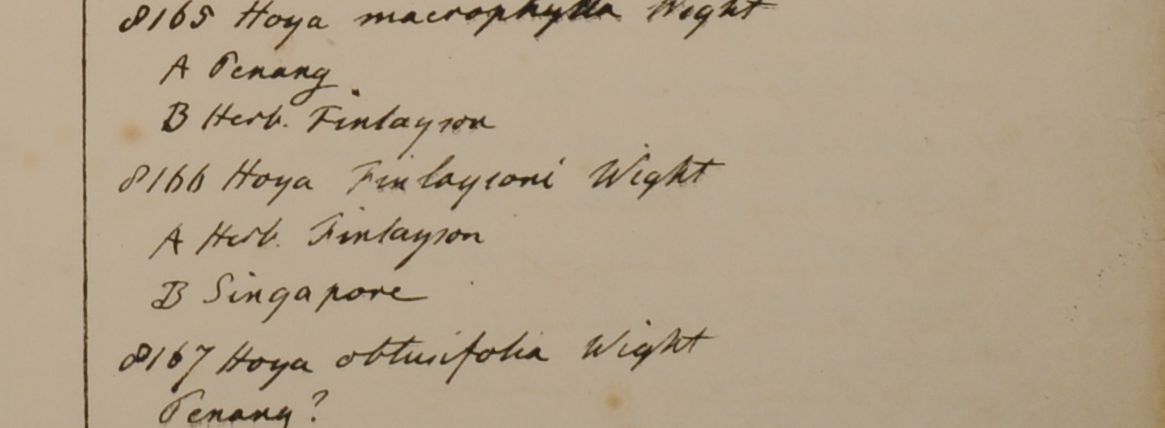 8165 Hoya macrophylla Wight
A Penang
B Herb. Finlayson
8166 Hoya Finlaysoni Wight
A Herb. Finlayson
B Singapore
8167 Hoya obtusifolia Wight
Penang?